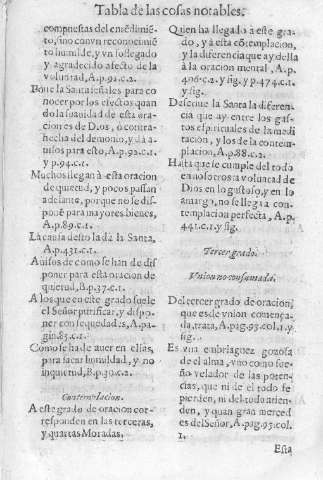 Tabla de las cosas notables.
compuestas del entẽdimiẽ-
to, sino con vn reconocimiẽ
to humilde, y vn sossegado
y agradecido afecto de la
voluntad, A.p.91.c.2.
Pone la Santa señales para co
nocer por los efectos quan
do la suauidad de esta ora
cion es de Dios, o contra-
hecha del demonio, y dà a-
uisos para esto, A.p.92.c.1.
y p.94.c.1.
Muchos llegan à esta oracion
de quietud, y pocos passan
adelante, porque no se dis-
ponẽ para mayores bienes,
A.p.89.c.1.
La causa desto la dà la Santa,
A.p.431.c.1.
Auisos de como se han de dis
poner para esta oracion de
quietud, B.p.37.c.1.
A los que en este grado suele
el Señor purificar, y dispo-
ner con sequedades, A.pa-
gin.85.c.1.
Como se ha de auer en ellas,
para sacar humildad, y no
inquietud, B.p.30.c.2.
Contemplacion.
A este grado de oracion cor-
responden en las terceras,
y quartas Moradas.
Quien ha llegado a este gra-
do, y à esta cõtemplacion,
y la diferencia que ay della
à la oracion mental, A.p.
406.c.2. y sig. y p.474.c.1.
y sig.
Descriue la Santa la diferen-
cia que ay entre los gus-
tos espirituales de la medi
tacion, y los de la contem-
placion, A.p.88.c.2.
Hasta que se cumple del todo
en nosotros la voluntad de
Dios en lo gustoso, y en lo
amargo, no se llega a con-
templacion perfecta, A.p.
441.c.1. y sig.
Tercer grado.
Vnion no consumada.
Del tercer grado de oracion,
que es de vnion comença-
da, trata, A.pag.93.col.1.y
sig.
Es vna embriaguez gozosa
de el alma, vno como sue-
ño velador de las poten-
cias, que ni de el todo se
pierden, ni del todo atien-
den, y quan gran merced
es del Señor, A.pag.93.col.
1.
Esta